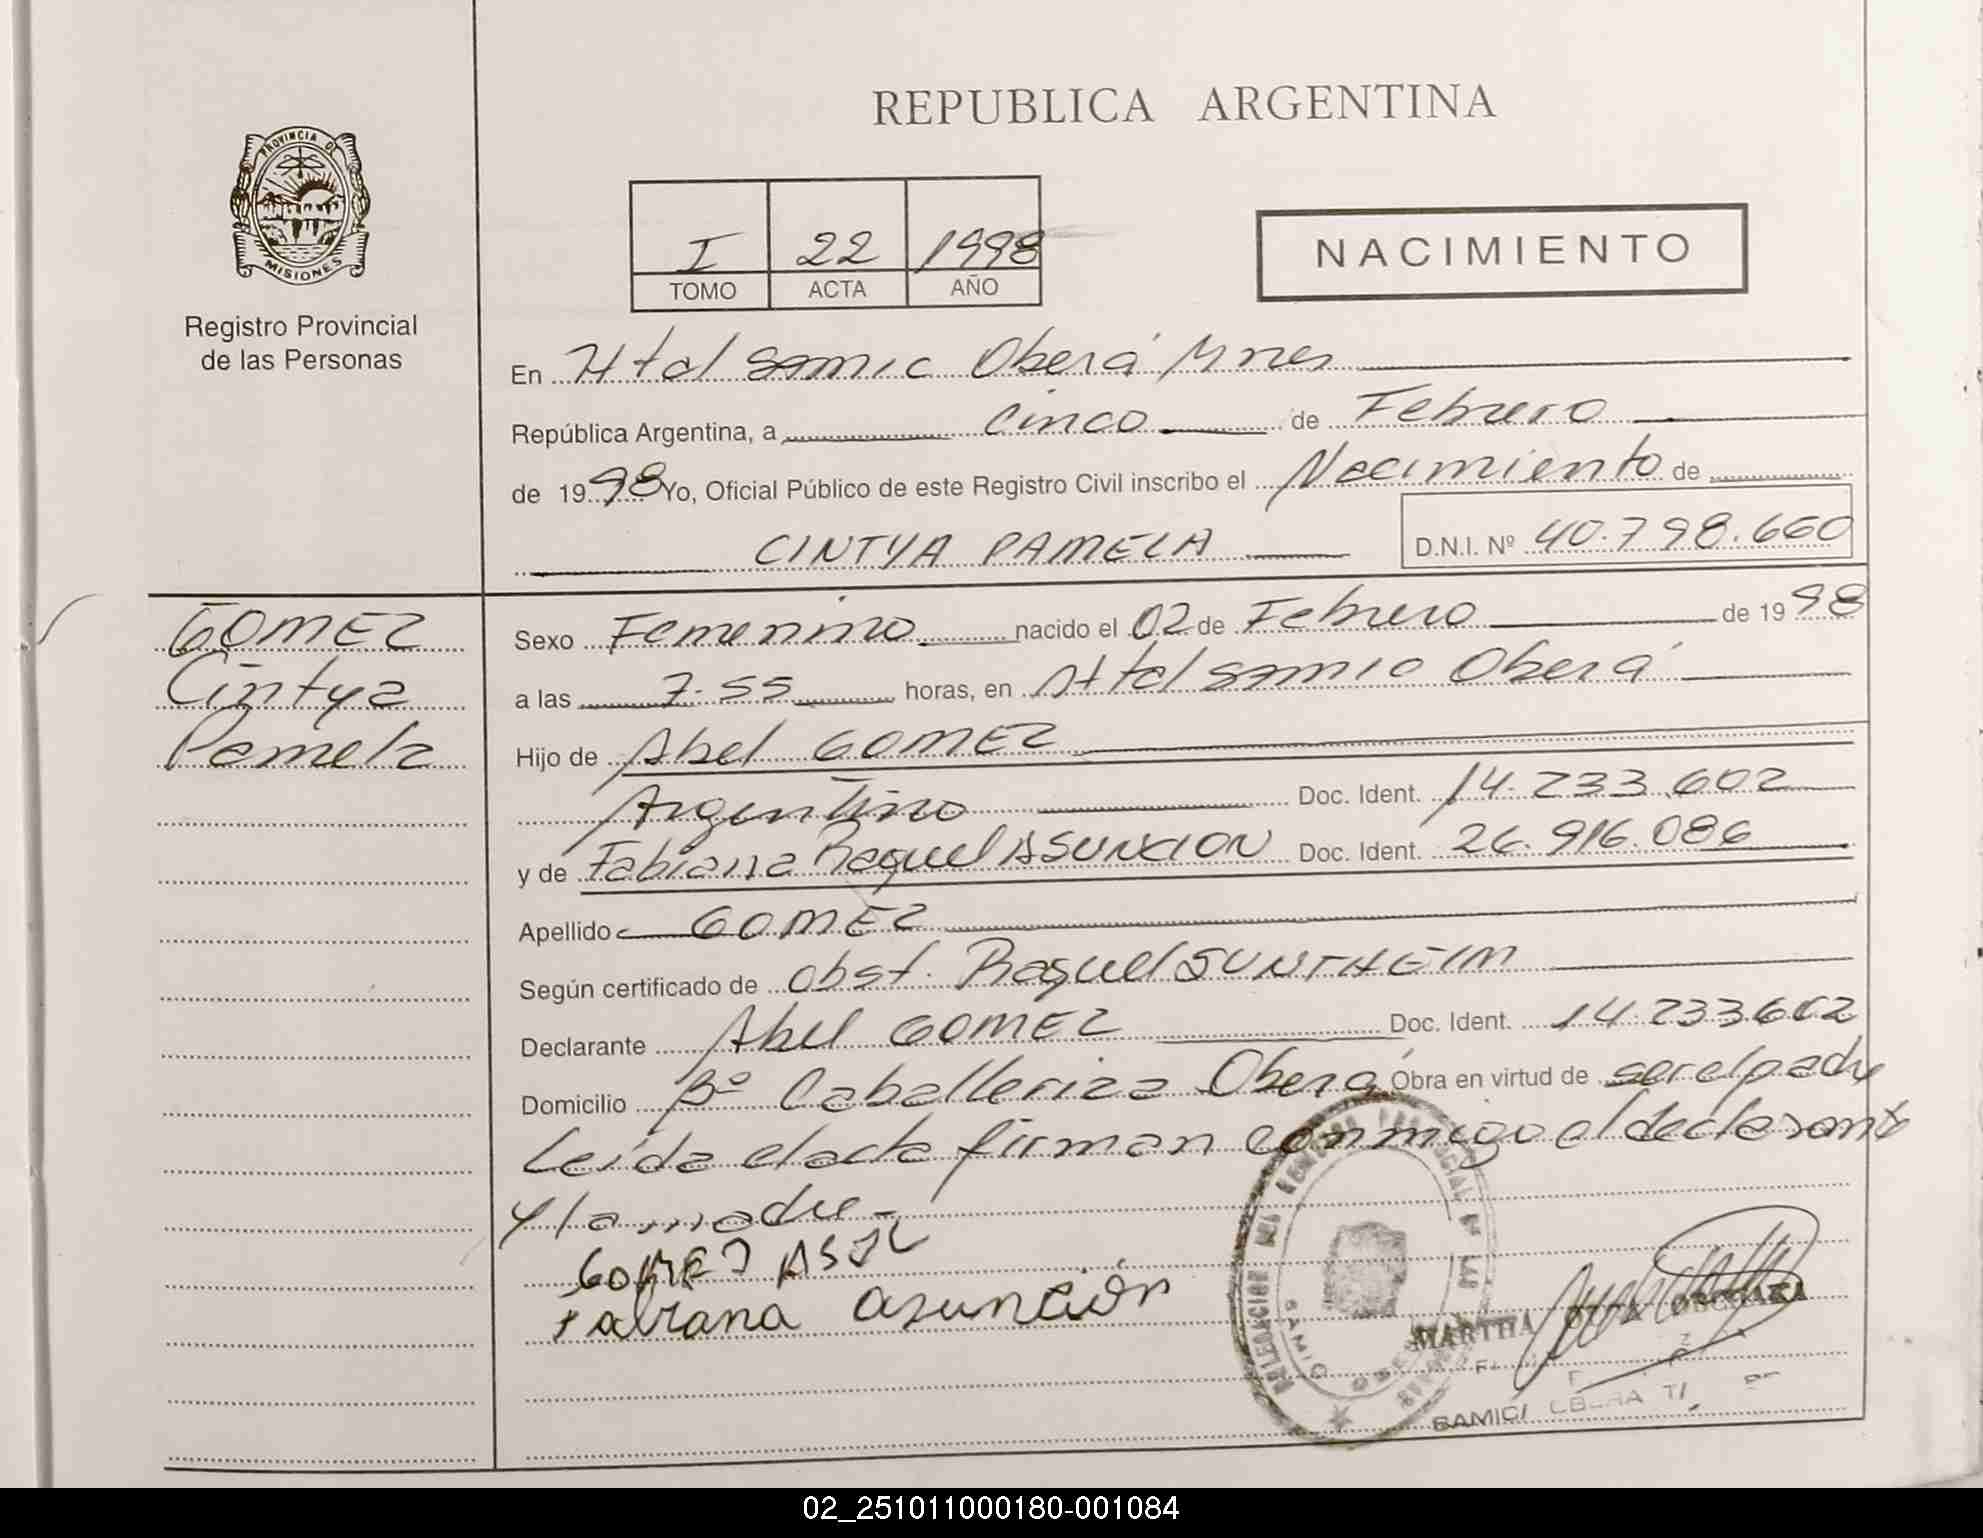 REPUBLICA ARGENTINA
PROVINCIA DE
MISIONES
Registro Provincial
de las Personas
I 22 1998
TOMO ACTA AÑO
NACIMIENTO
En Htal Samic Oberá Mnes
República Argentina, a cinco de Febrero
de 1998 Yo, Oficial Público de este Registro Civil inscribo el Nacimiento de
CINTYA PAMELA D.N.I. Nº 40.798.660
GOMEZ
Cintya
Pamela
Sexo Femenino nacido el 02 de Febrero de 1998
a las 7.55 horas, en Htal Samic Oberá
Hijo de Abel GOMEZ
Argentino Doc. Ident. 14.233.602
y de Fabiana Raquel ASUNCION Doc. Ident. 26.916.086
Apellido GOMEZ
Según certificado de obst. Raquel SUNTHEIM
Declarante Abel GOMEZ Doc. Ident. 14.233.602
Domicilio Bº Caballeriza Oberá Obra en virtud de ser el padre
Leída el acta firman conmigo el declarante
y la madre-
GOMEZ
Fabiana asunción
DELEGACION DEL
SAMIC
MARTHA
SAMIC
02_251011000180-001084